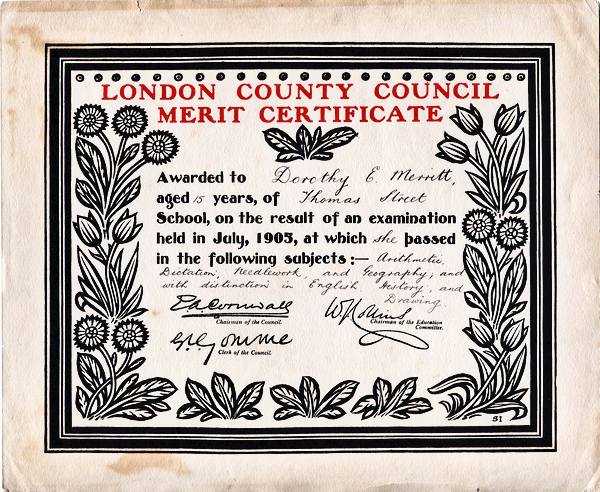 LONDON COUNTY COUNCIL
MERIT CERTIFICATE
Awarded to Dorothy E. Merritt,
aged 15 years, of Thomas Street
School, on the result of an examination
held in July, 1905, at which she passed
in the following subjects:— Arithmetic,
Dictation, Needlework, and Geography; and
with distinction in English, History, and
Drawing.
E A Cornwall
Chairman of the Council.
Chairman of the Education
Committee.
G L Gomme
Clerk of the Council.
51